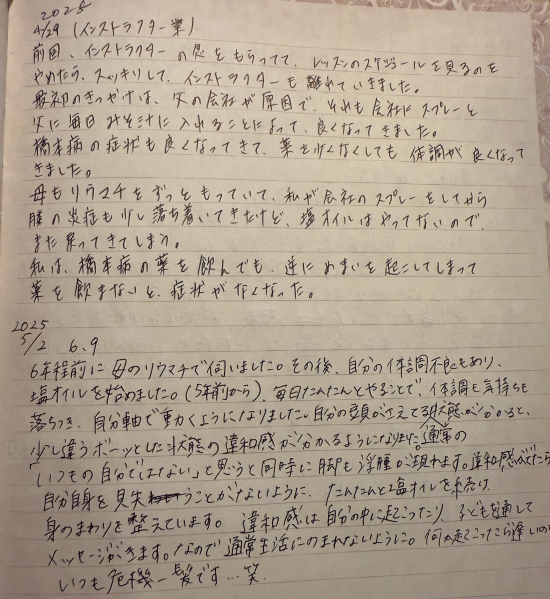 2025
4/29 (インストラクター業)
前回、インストラクターの念をもらってて、レッスンのスケジュールを見るのを
やめたら、スッキリして、インストラクターも離れていきました。
最初のきっかけは、父の会社が原因で、それも会社にスプレーと
父に毎日みそ汁に入れることによって、良くなってきました。
橋本病の症状も良くなってきて、薬を少くなくしても体調が良くなって
きました。
母もリウマチをずっともっていて、私が会社のスプレーをしてから
膝の炎症も少し落ち着いてきたけど、塩オイルはやってないので、
また戻ってきてしまう。
私は、橋本病の薬を飲んでも、逆にめまいを起こしてしまって
薬を飲まないと、症状がなくなった。
2025
5/2 6、9
6年程前に母のリウマチで伺いました。その後、自分の体調不良もあり、
塩オイルを始めました。(5年前から)、毎日たんたんとやることで、体調も気持ちも
落ちつき、自分軸で動くようになりました。自分の頭が冴えてる状態が分かると、
少し違うボーッとした状態の違和感が分かるようになりました 通常の
「いつもの自分ではない」と思うと同時に脚も浮腫が現れます。違和感がでたら
自分自身を見失うことがないように、たんたんと塩オイルを続け
身のまわりを整えています。違和感は自分の中に起こったり、子どもを通して
メッセージがきます。なので通常生活にのまれないように。何か起こったら遅いので
いつも危機一髪です…笑